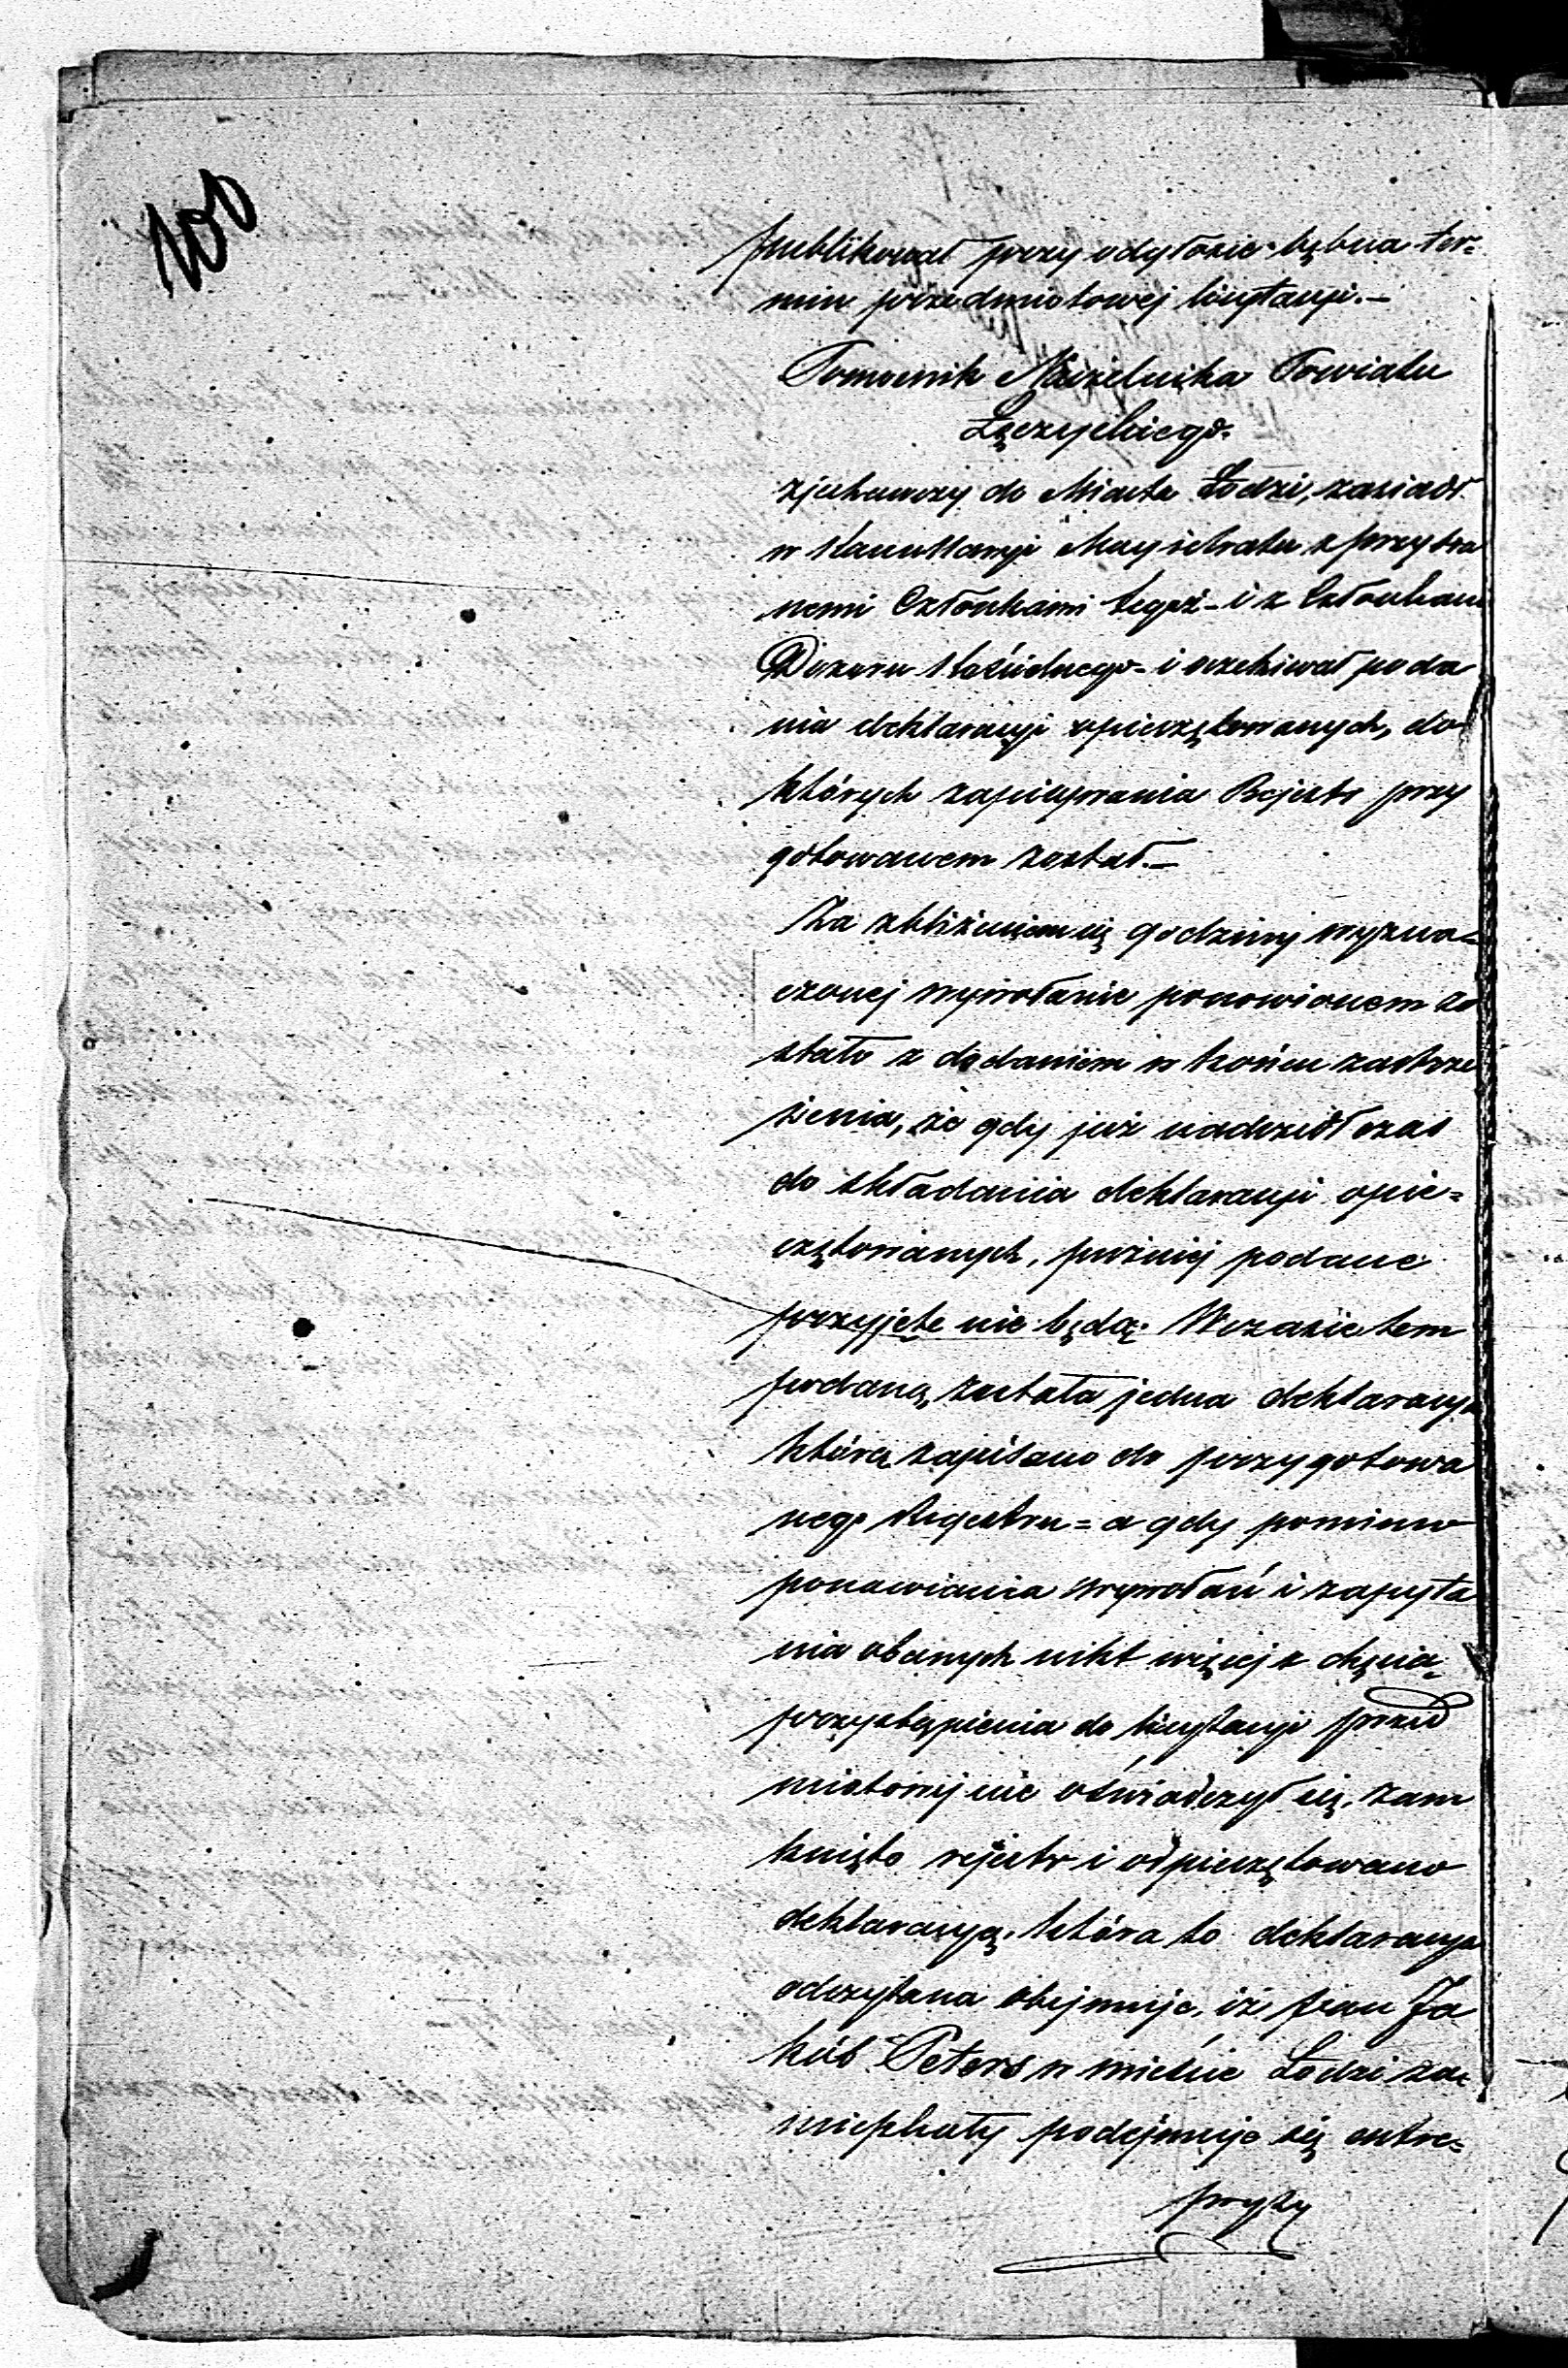 100
publikował przy odgłosie bębna ter=
min przedmiotowej licytacyi.—
Pomocnik Naczelnika Powiatu
Łęczyckiego.
zjechawszy do Miasta Łodzi, zasiadł
w Kancellaryi Magistratu z przybra
nemi Członkami tegoż - i z Członkami
Dozoru Kościelnego - i oczekiwał poda
nia deklaracyi opieczętowanych, do
których zapisywania Rejestr przy
gotowanem został.—
Za zbliżeniem się godziny wyzna=
czonej wywołanie ponowionem zo
stało z dodaniem w końcu zastrze
żenia, że gdy już nadszedł czas
do składania deklaracyi opie=
czętowanych, pózniej podane
przyjęte nie będą. Wczasie tem
podaną została jedna deklaracya
którą zapisano do przygotowa
nego Regestru = a gdy pomimo
ponawiania wywołań i zapyta
nia obcanych nikt więcej z chęcią
przystąpienia do licytacyi przed
miotowej nie oświadczył się, zam
knięto rejestr i odpieczętowano
deklaracyą, która to deklaracya
odczytana obejmuje, iż pan Ja
kób Peters w mieście Łodzi za=
mieszkały podejmuje się entre=
pryzy